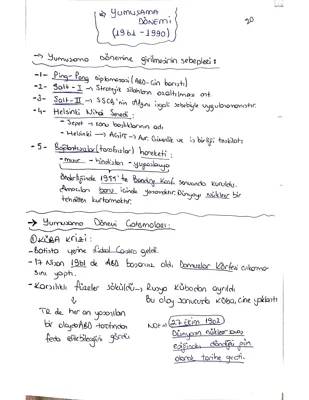 YUMUŞAMA
DÖNEMİ
(1961-1990)
20
→ Yumuşama Dönemine girilmesinin sebepleri:
-1- Ping-Pong diplomasisi (ABD-Çin barıştı)
-2- Salt-I → Stratejik silahların azaltılması ant.
-3- Salt-II → SSCB'nin Afganı işgali sebebiyle uygulanamamıştır.
-4- Helsinki Nihai Senedi:
- Sepet → konu başlıklarının adı
- Helsinki → AGİT → Avr. Güvenlik ve iş birliği teşkilatı
-5- Bağlantısızlar (tarafsızlar) hareketi:
- mısır - hindistan - yugoslavya
önderliğinde 1955'te Bandung Konf. sonucunda kuruldu.
Amaçları barış içinde yaşamaktır. Dünyayı nükleer bir
tehditten kurtarmaktır.
→ Yumuşama Dönemi Çatışmaları:
① KÜBA KRİZİ:
- Batista yerine Fidel Castro geldi.
- 17 Nisan 1961 de ABD başarısız oldu Domuzlar Körfezi çıkarma-
sını yaptı.
- Karşılıklı füzeler söküldü → Rusya Kübadan ayrıldı
Bu olay sonucunda Küba, Çine yaklaştı
TR de her an yaşanılan
bir olayda ABD tarafından
feda edilebileceğini gördü
NOT → 27 Ekim 1962
Dünyanın nükleer savaş
eşiğinden döndüğü gün
olarak tarihe geçti.